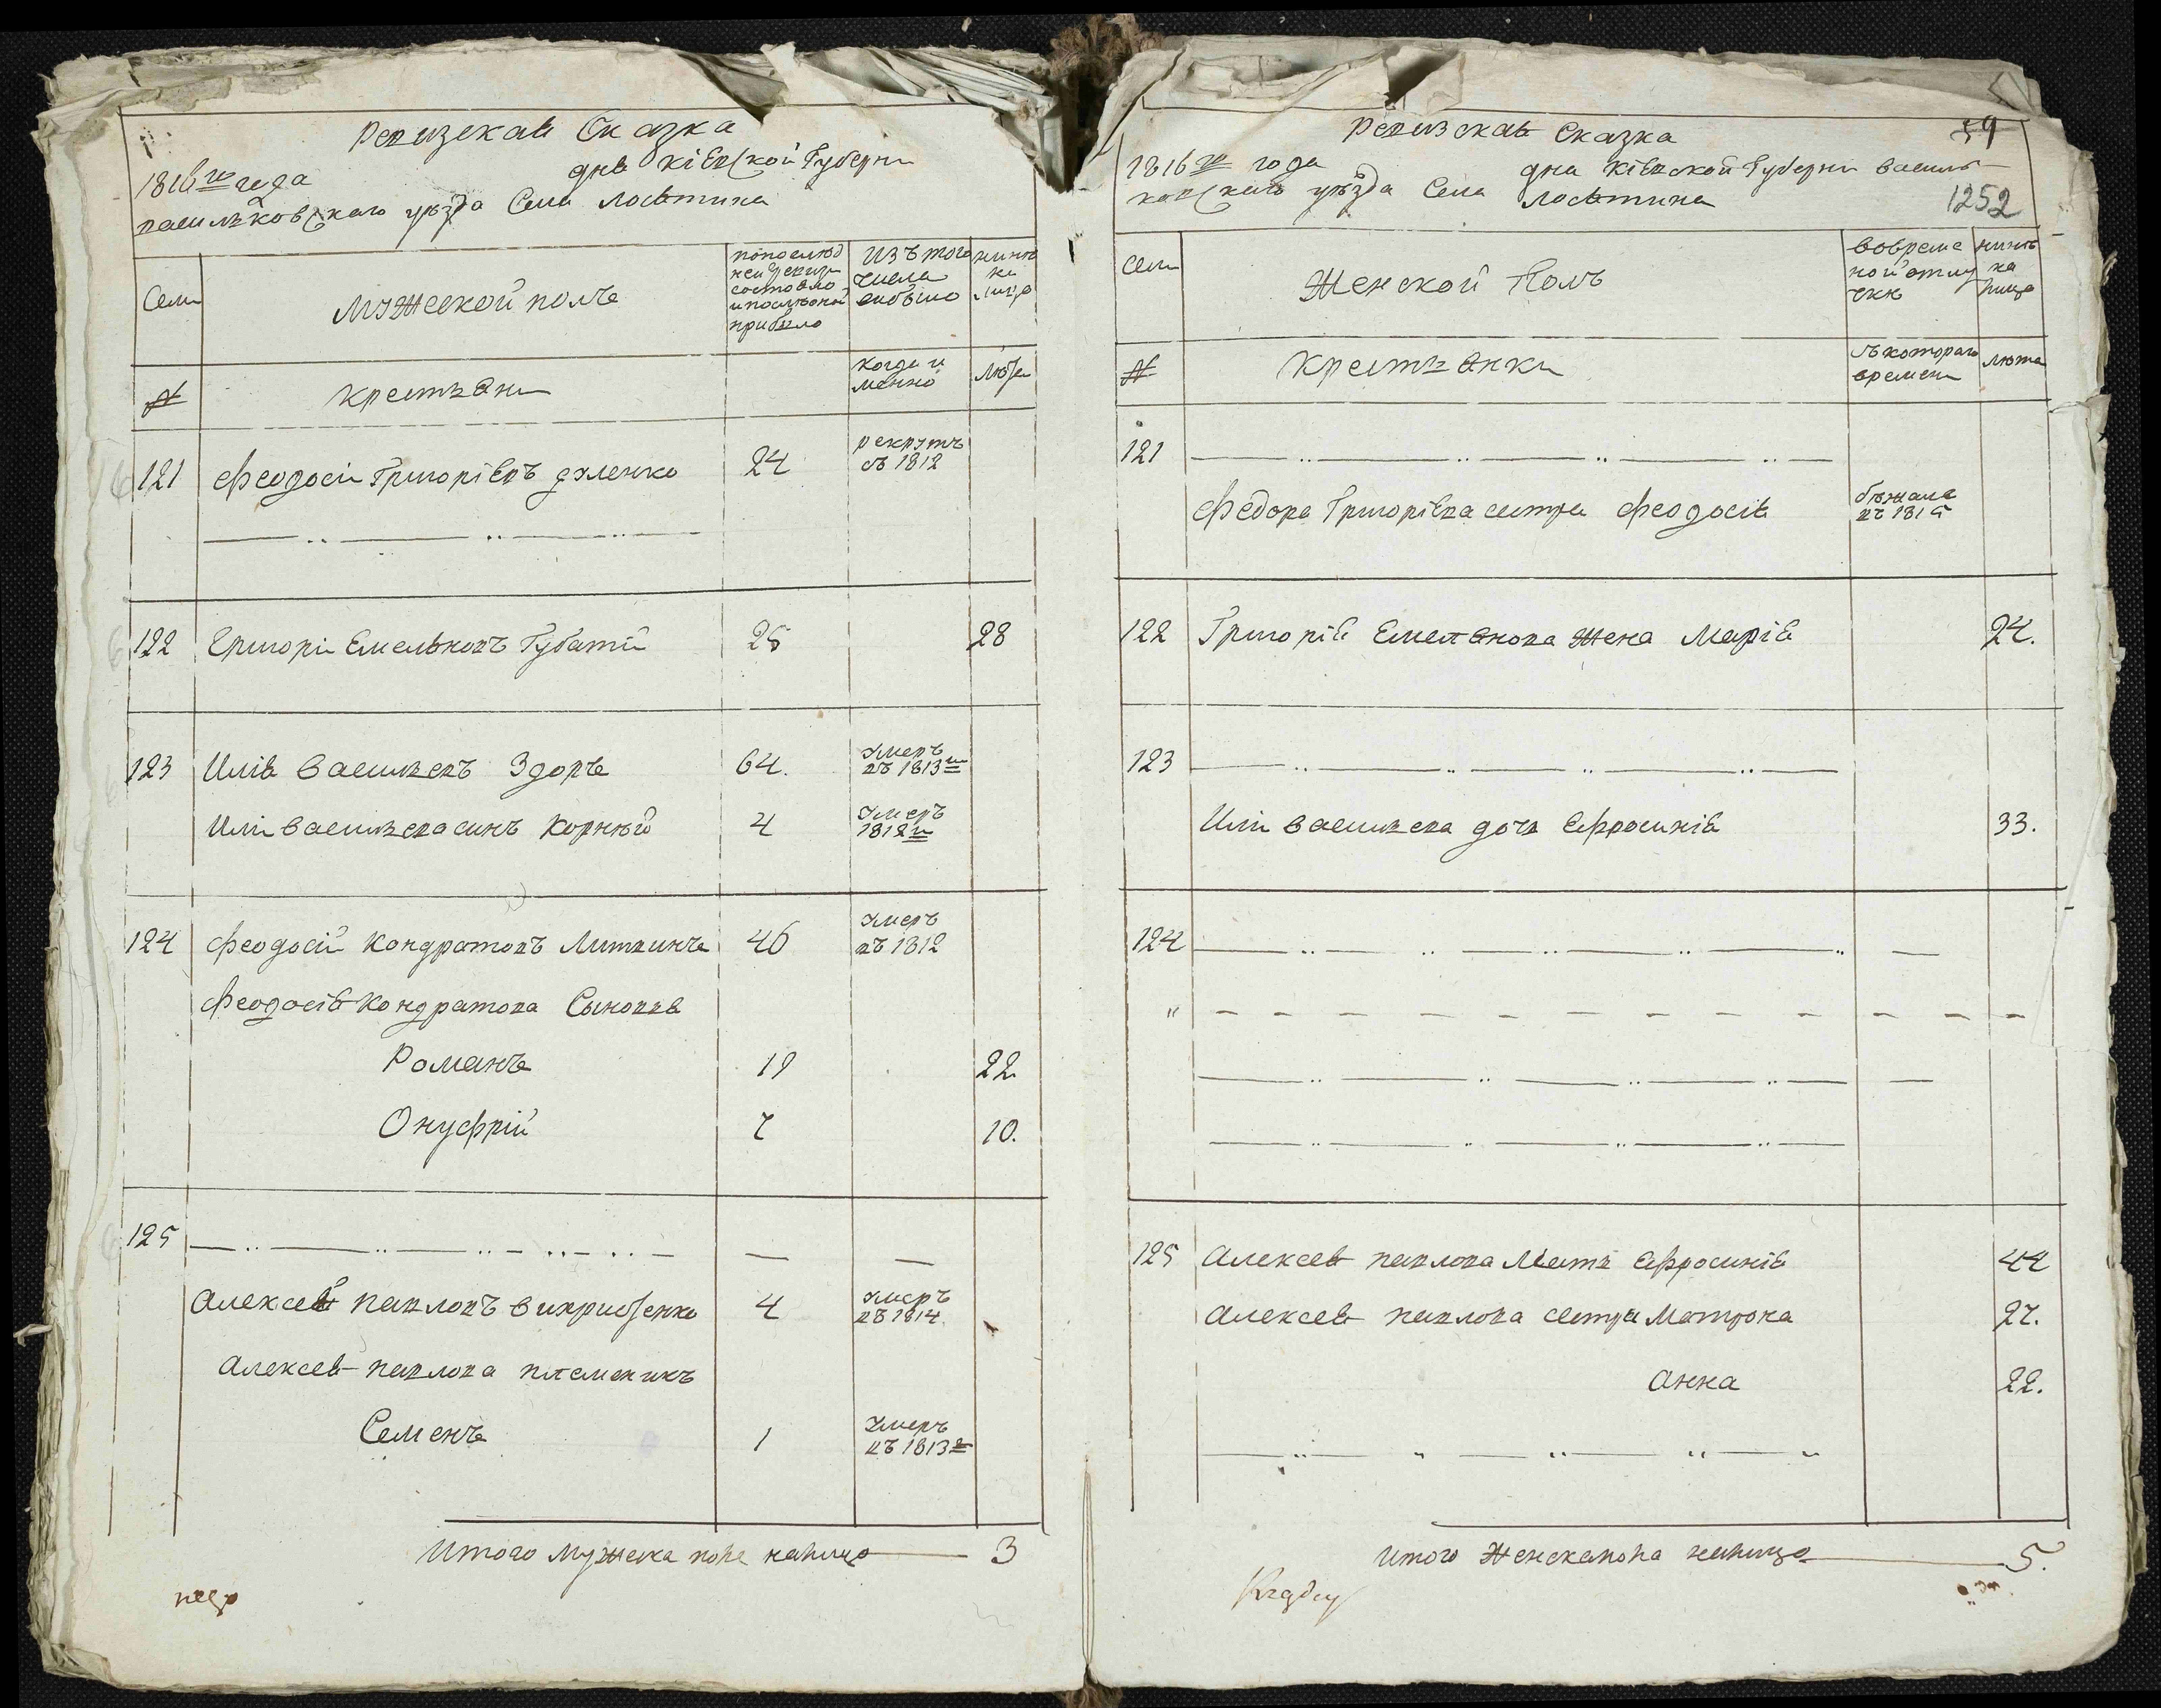 Ревизская Сказка
1816го года дня Кіевской Губерни
васильковскаго уезда Села Лосятина
Семи
Мужеской полъ
попослед
ней ревизи
состояло
и после оной
прибыло
Изъ того
числа
выбыло
ныне
на
лицо
№
Крестьяни
Когда и
мянно
лета
121 Феодоси Григоріевъ 24
рекрутъ
въ 1812
122 Григори Емельяновъ Губатий 25 28
123 Илія Васильевъ Здоръ 64.
умеръ
въ 1813м
Или Васильева синъ Корней 4
умеръ
1812м
124 Феодосій Кондратовъ Литвинъ 46
умеръ
въ 1812
Феодосія Кондратова Сыновья
Романъ 19 22.
Онуфрій 7 10.
125
Алексей Павловъ 4
умеръ
въ 1814
Алексея Павлова племеникъ
Семенъ 1
умеръ
въ 1813
Итого мужска пола налицо 3
Ревизская Сказка
59
1816го года дня Кіевской Губерни Василь-
ковскаго уезда Села Лосятина
1252
Семи
Женской Полъ
вовреме
ной отлу
чке
ныне
на
лицо
№
Крестьянки
Съ котораго
времени
лета
121
Федора Григоріева сестра Феодосія
бежала
въ 1815
122 Григорія Емелянова жена Марія 24.
123
Или Васильева дочь Ефросинія 33.
124
125 Алексея Павлова Мать Ефросинія 44
Алексея Павлова сестра Матрона 27.
Анна 22.
Итого Женска пола налицо 5.